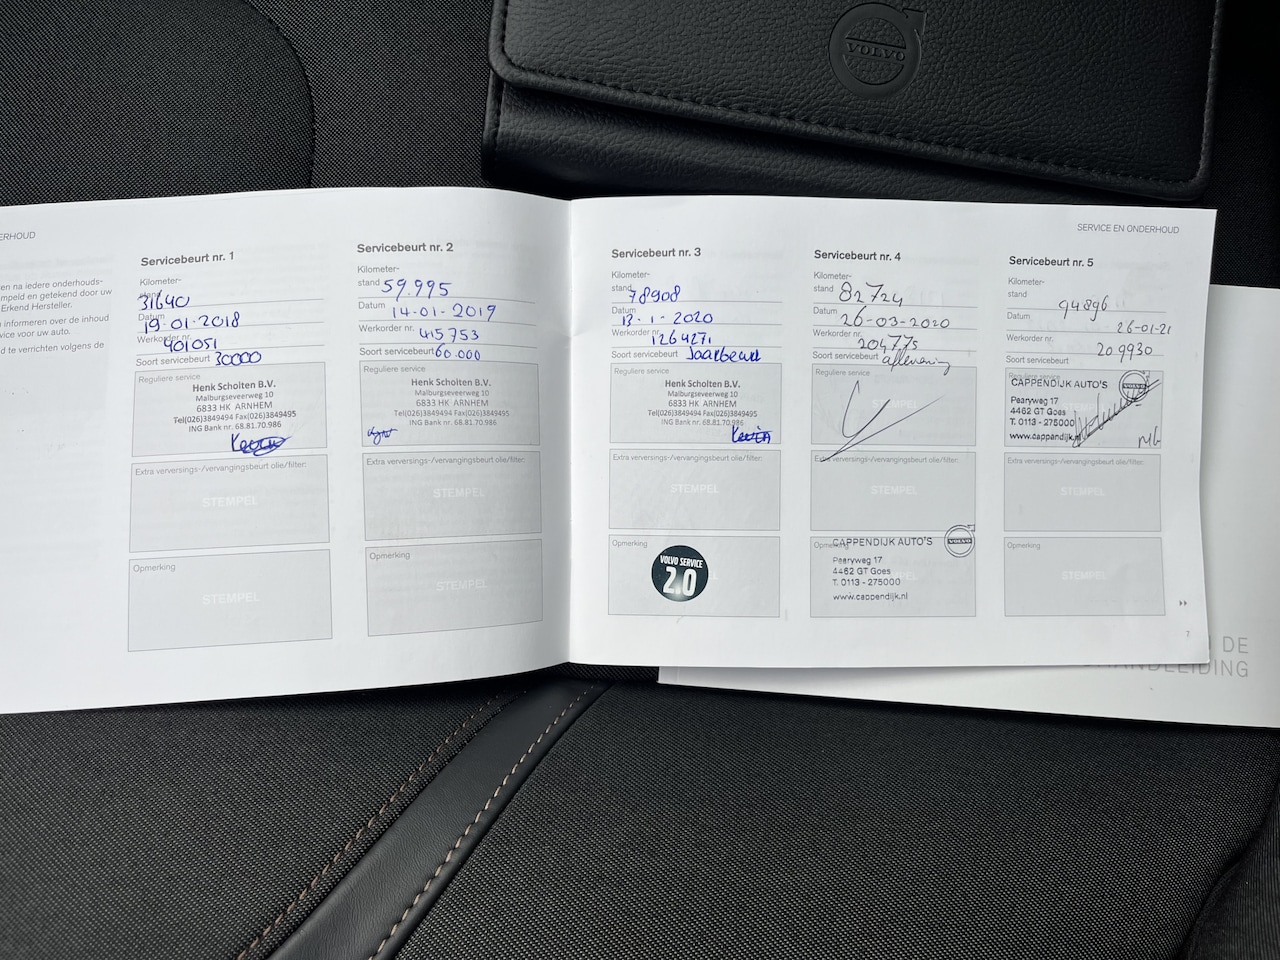 VOLVO
ERHOUD
en na iedere onderhouds-
mpeld en getekend door uw
Erkend Hersteller.
n informeren over de inhoud
vice voor uw auto.
d te verrichten volgens de
Servicebeurt nr. 1
Kilometer-
stand 31640
Datum
19-01-2018
Werkorder nr.
401051
Soort servicebeurt 30000
Reguliere service
Henk Scholten B.V.
Malburgseveerweg 10
6833 HK ARNHEM
Tel(026)3849494 Fax(026)3849495
ING Bank nr. 68.81.70.986
Extra verversings-/vervangingsbeurt olie/filter:
STEMPEL
Opmerking
STEMPEL
Servicebeurt nr. 2
Kilometer-
stand 59.995
Datum 14-01-2019
Werkorder nr. 415753
Soort servicebeurt 60.000
Reguliere service
Henk Scholten B.V.
Malburgseveerweg 10
6833 HK ARNHEM
Tel(026)3849494 Fax(026)3849495
ING Bank nr. 68.81.70.986
Extra verversings-/vervangingsbeurt olie/filter:
STEMPEL
Opmerking
STEMPEL
SERVICE EN ONDERHOUD
Servicebeurt nr. 3
Kilometer-
stand 78908
Datum
13-1-2020
Werkorder nr.
1264271
Soort servicebeurt Jaarbeurt
Reguliere service
Henk Scholten B.V.
Malburgseveerweg 10
6833 HK ARNHEM
Tel(026)3849494 Fax(026)3849495
ING Bank nr. 68.81.70.986
Kevin
Extra verversings-/vervangingsbeurt olie/filter:
STEMPEL
Opmerking
VOLVO SERVICE
2.0
Servicebeurt nr. 4
Kilometer-
stand 82724
Datum 26-03-2020
Werkorder nr. 204775
Soort servicebeurt aflevering
Reguliere service
STEMPEL
Extra verversings-/vervangingsbeurt olie/filter:
STEMPEL
Opmerking
CAPPENDIJK AUTO'S
VOLVO
Pearyweg 17
4462 GT Goes
T. 0113 - 275000
www.cappendijk.nl
Servicebeurt nr. 5
Kilometer-
stand 94896
Datum 26-01-21
Werkorder nr. 209930
Soort servicebeurt
Reguliere service
CAPPENDIJK AUTO'S
VOLVO
Pearyweg 17
4462 GT Goes
T. 0113 - 275000
www.cappendijk.nl
Extra verversings-/vervangingsbeurt olie/filter:
STEMPEL
Opmerking
STEMPEL
7
DE
HANDLEIDING